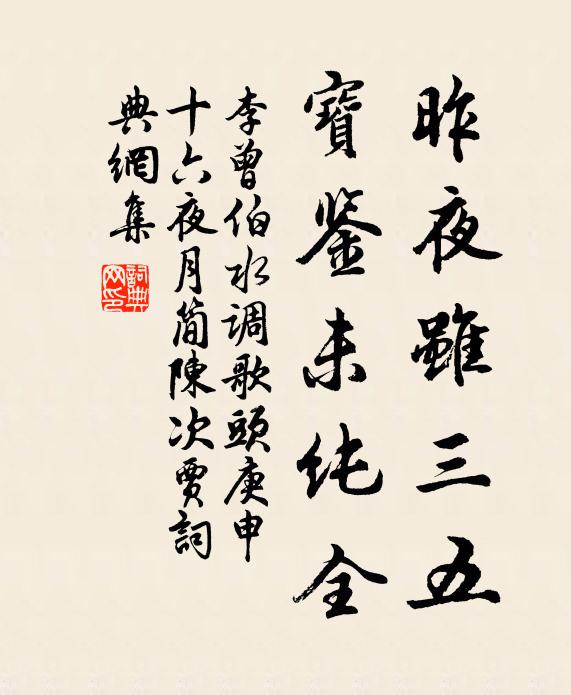 昨夜雖三五
寶鉴未纯全
李曾伯水调歌頭庚申
十六夜月简陳次賈詞
典網集
詞典网印